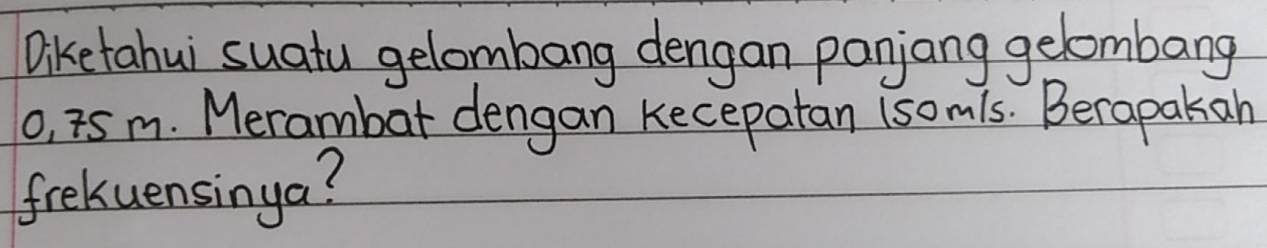 Diketahui suatu gelombang dengan panjang gelombang
0,75 m. Merambat dengan kecepatan 150 m/s. Berapakah
frekuensinya?